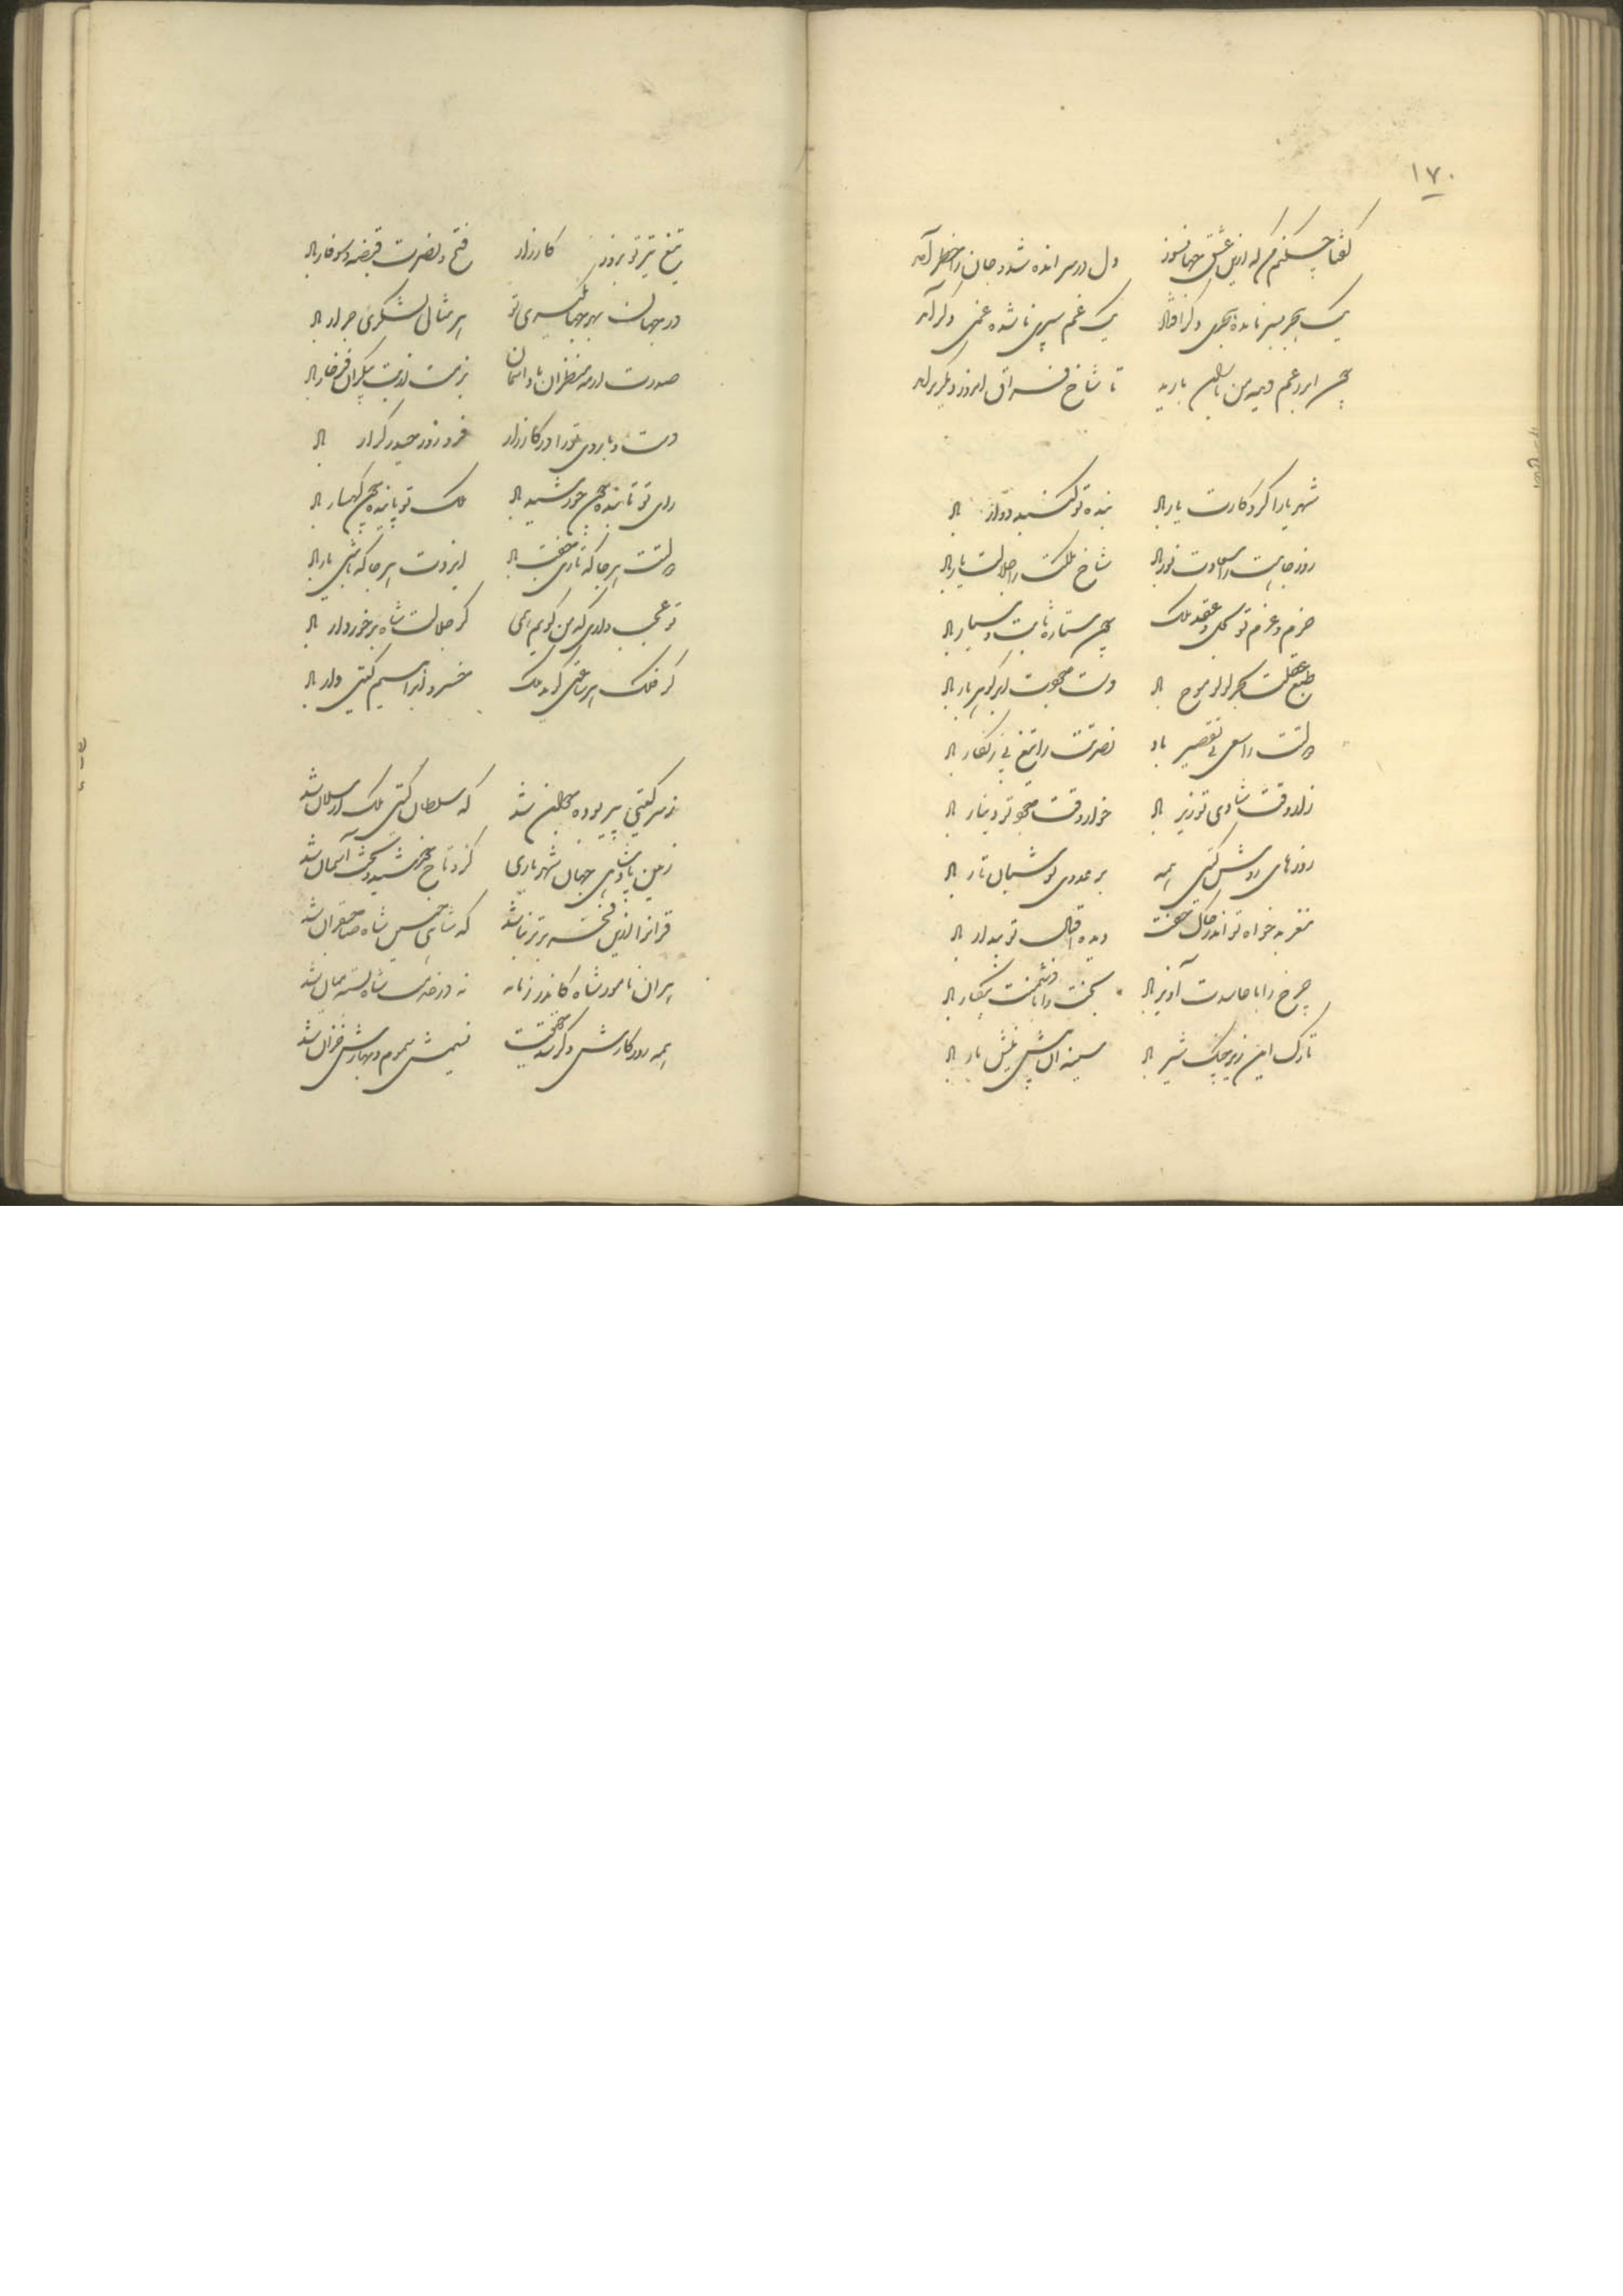 ۱۷۰
گفتا چکنم من که ازین عشق جهانسوز دل در سر اندوه شد و جان را خطر آمد
یک هجر بسر نامده هجری دگر افتاد یک غم سپری ناشده غمی دگر آمد
چون ابر ز غم دیده من باران بارید تا شاخ فراق امروز دیگر ببر آمد
شهریارا کردگارت یار باد بنده تو گنبد دوار باد
روز جاهت را سعادت نور باد شاخ ملکت را جلالت بار باد
حزم و عزم تو بحل و عقد ملک چون ستاره ثابت و سیار باد
طبع عقلت بحر لولو موج باد دست جودت ابر گوهر بار باد
دولتت را سعی بی تقصیر باد نصرتت را تیغ بی زنگار باد
زار وقت شادی تو زیر باد خوار وقت جود تو دینار باد
روزهای روشن گیتی همه بر عدوی تو شبان تار باد
مغز بدخواه تو اندر خاک خفت دیده اقبال تو بیدار باد
چرخ را با حاسدت آویز باد بخت را با دشمنت پیکار باد
تارک این زیر چنگ شیر باد سینه آن پیش نیش مار باد
تیغ تیز تو بروز کارزار فتح و نصرت قبضه و سوفار باد
در جهان بهر جهانگیری تو هر مثال لشکری جرار باد
صورت از مه منظران باد آسمان بزمت از بت پیکران فرخار باد
دست و بازوی تو را در کارزار فر و زور حیدر کرار باد
رای تو تابنده چون خورشید باد ملک تو پاینده چون کهسار باد
دولتت هر جا که تازی جفت باد ایزدت هر جا که باشی یار باد
تو عجب داری که من گویم همی کز جلالت شاه برخوردار باد
کز فلک هر ساعتی گوید ملک خسرو ابراهیم گیتی دار باد
ز سر گیتی پیر بوده جوان شد که سلطان گیتی ملک ارسلان شد
زمین پادشاهی جهان شهریاری کزو تاج خورشید و تخت آسمان شد
قران را ازین فخر برتر نباشد که شاهی چنین شاه صاحبقران شد
هر آن نامور شاه کاندر زمانه نه در خدمت شاه بسته میان شد
همه روزگارش دگر شد حقیقت نسیمش سموم و بهارش خزان شد